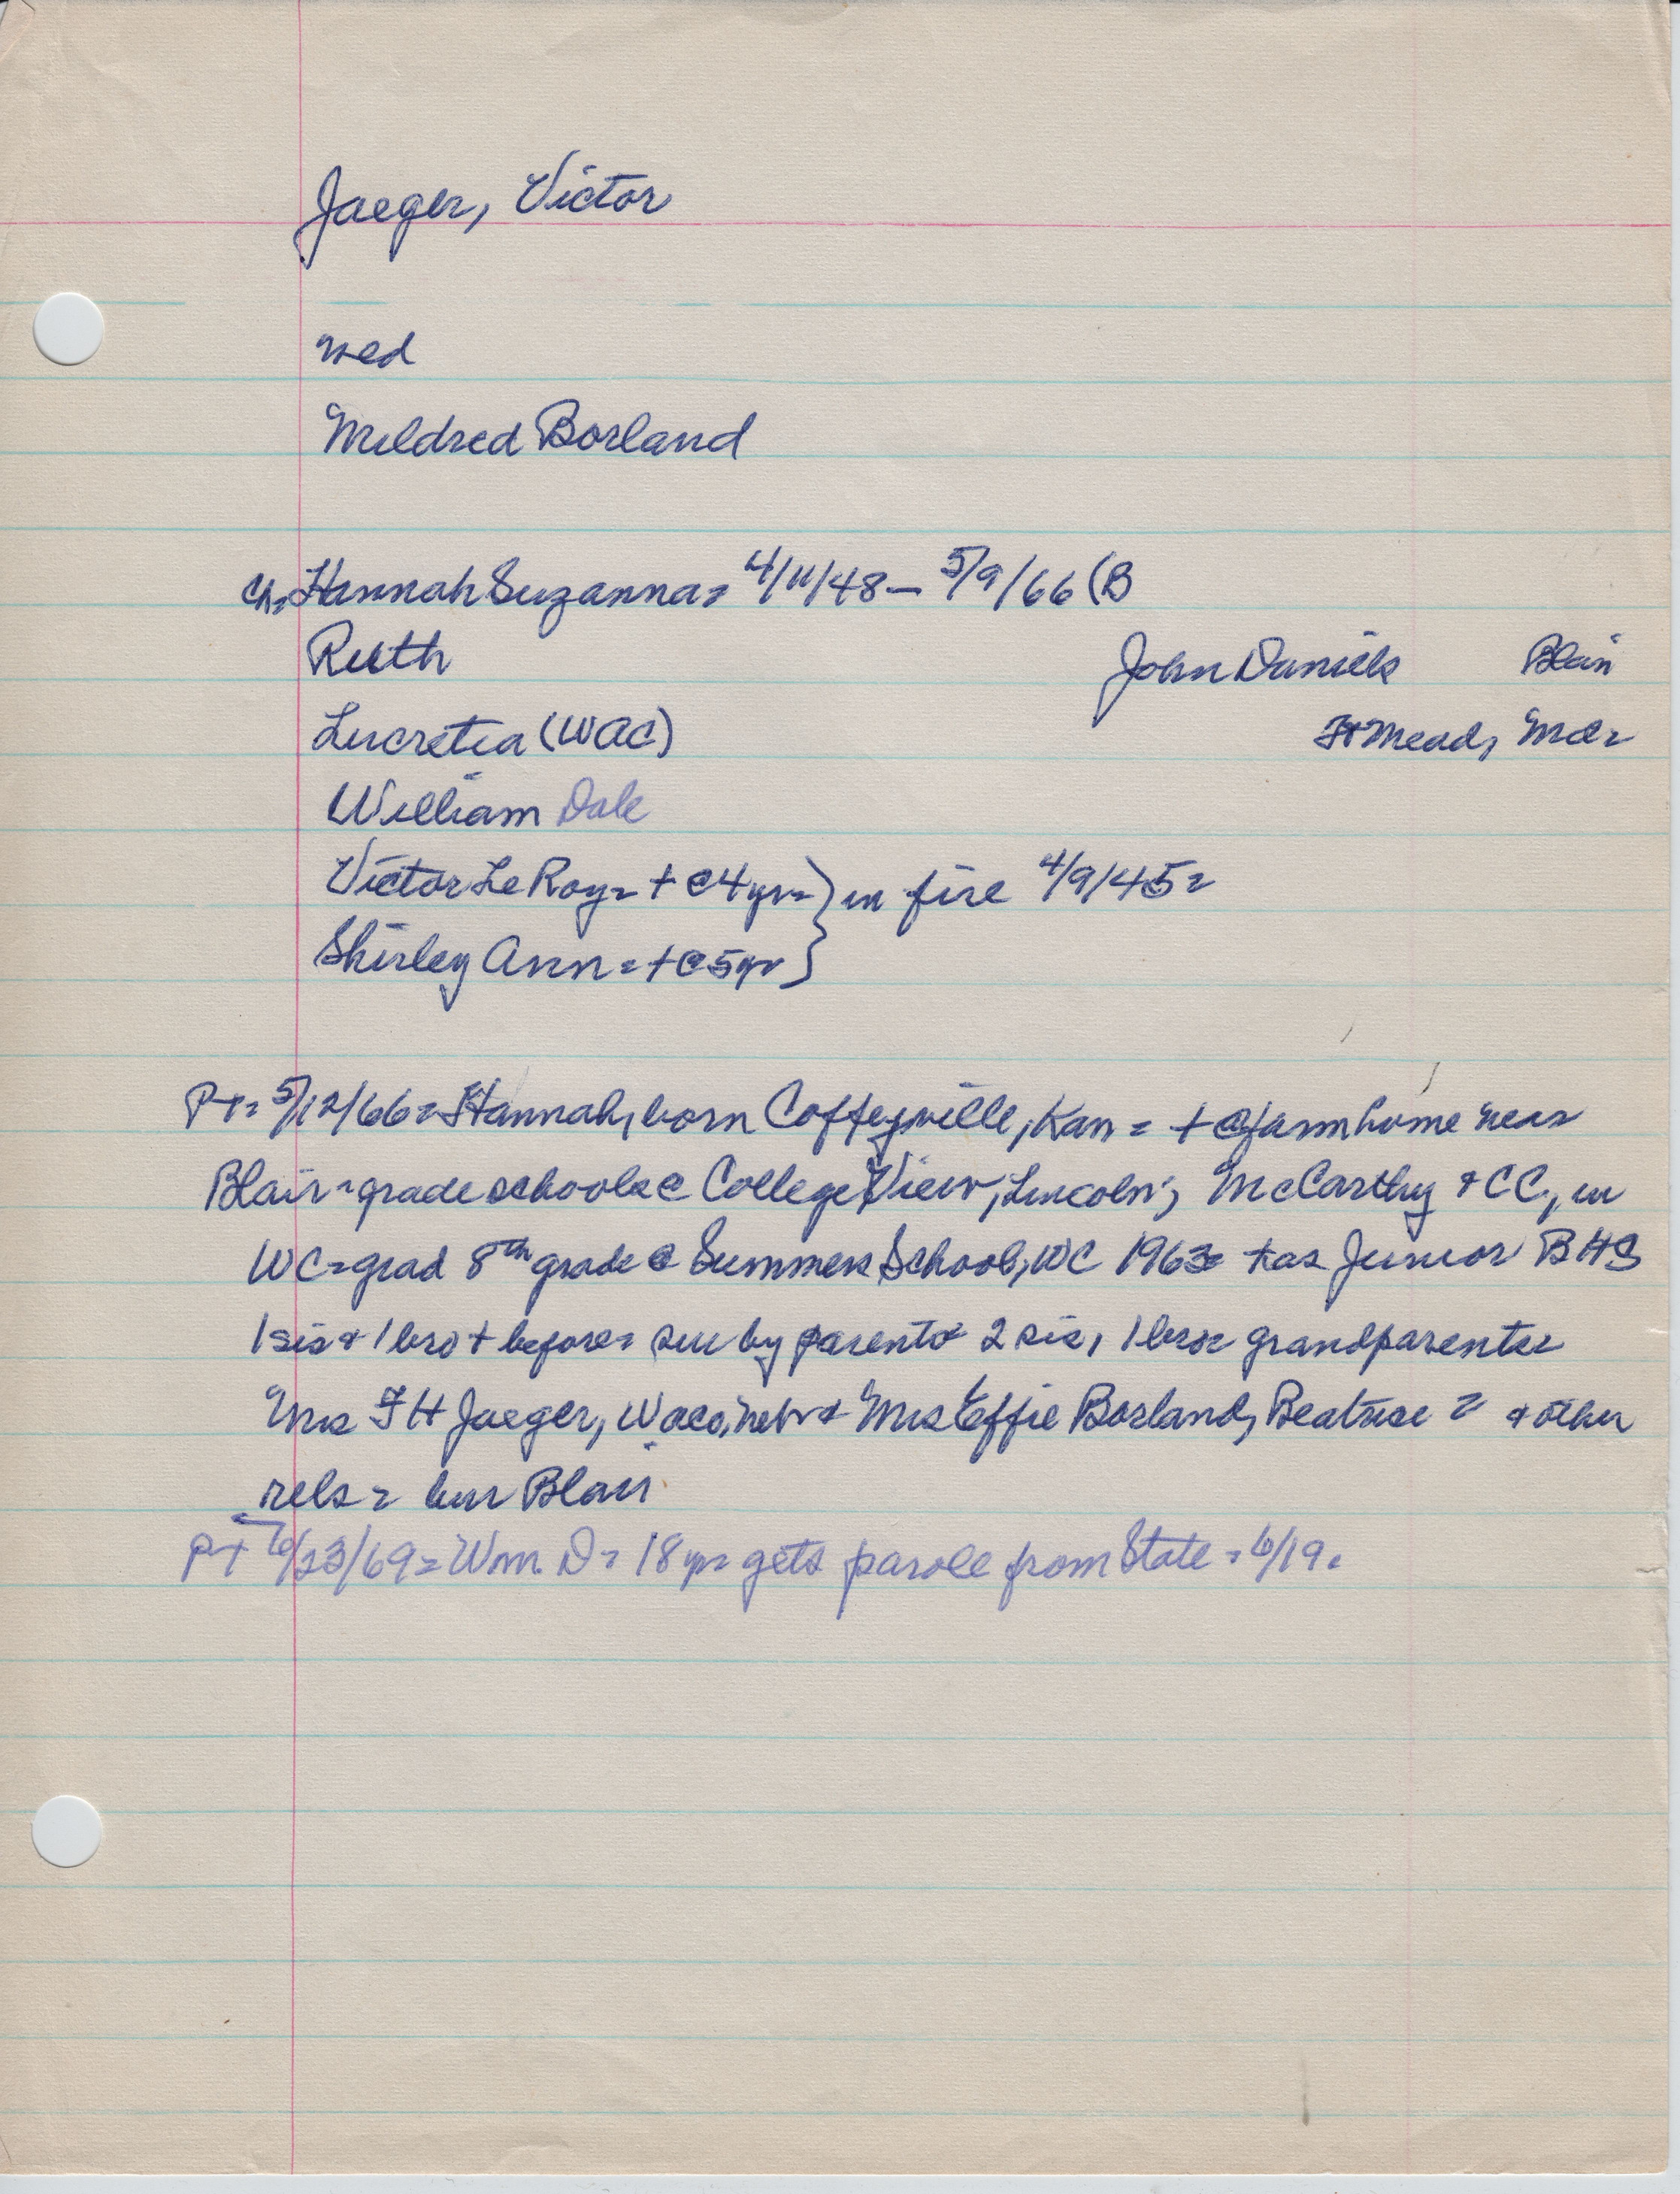 Jaeger, Victor
wed
Mildred Borland
ch= Hannah Suzanna= 4/11/48 — 5/9/66 (B
Ruth John Daniels Blair
Lucretia (WAC) Ft Mead, Md=
William Dale
Victor LeRoy= + @ 4 yr= } in fire 4/9/45=
Shirley Ann = + @ 5 yr }
PT= 5/12/66= Hannah, born Coffeyville, Kan = + @ farm home near
Blair= grade schools @ College View, Lincoln; McCarthy & CC., in
WC= grad 8th grade @ Summers School, WC 1963= + as Junior BHS
1 sis & 1 bro + before= sur by parents 2 sis, 1 bro= grandparents=
Mrs F H Jaeger, Waco, Neb & Mrs Effie Borland, Beatrice = & other
rels = bur Blair
PT 6/23/69= Wm. D= 18 yr= gets parole from State = 6/19.